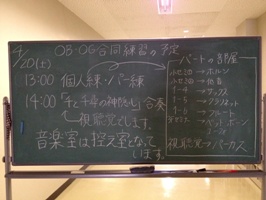 4/20(土) OB・OG合同練習の予定
13:00 個人練・パー練
14:00 「千と千尋の神隠し」合奏
視聴覚でします。
音楽室は控え室となって
います。
パートの部屋
→ホルン
1-4→サックス
1-5→クラリネット
1-6→フルート
視聴覚→パーカス